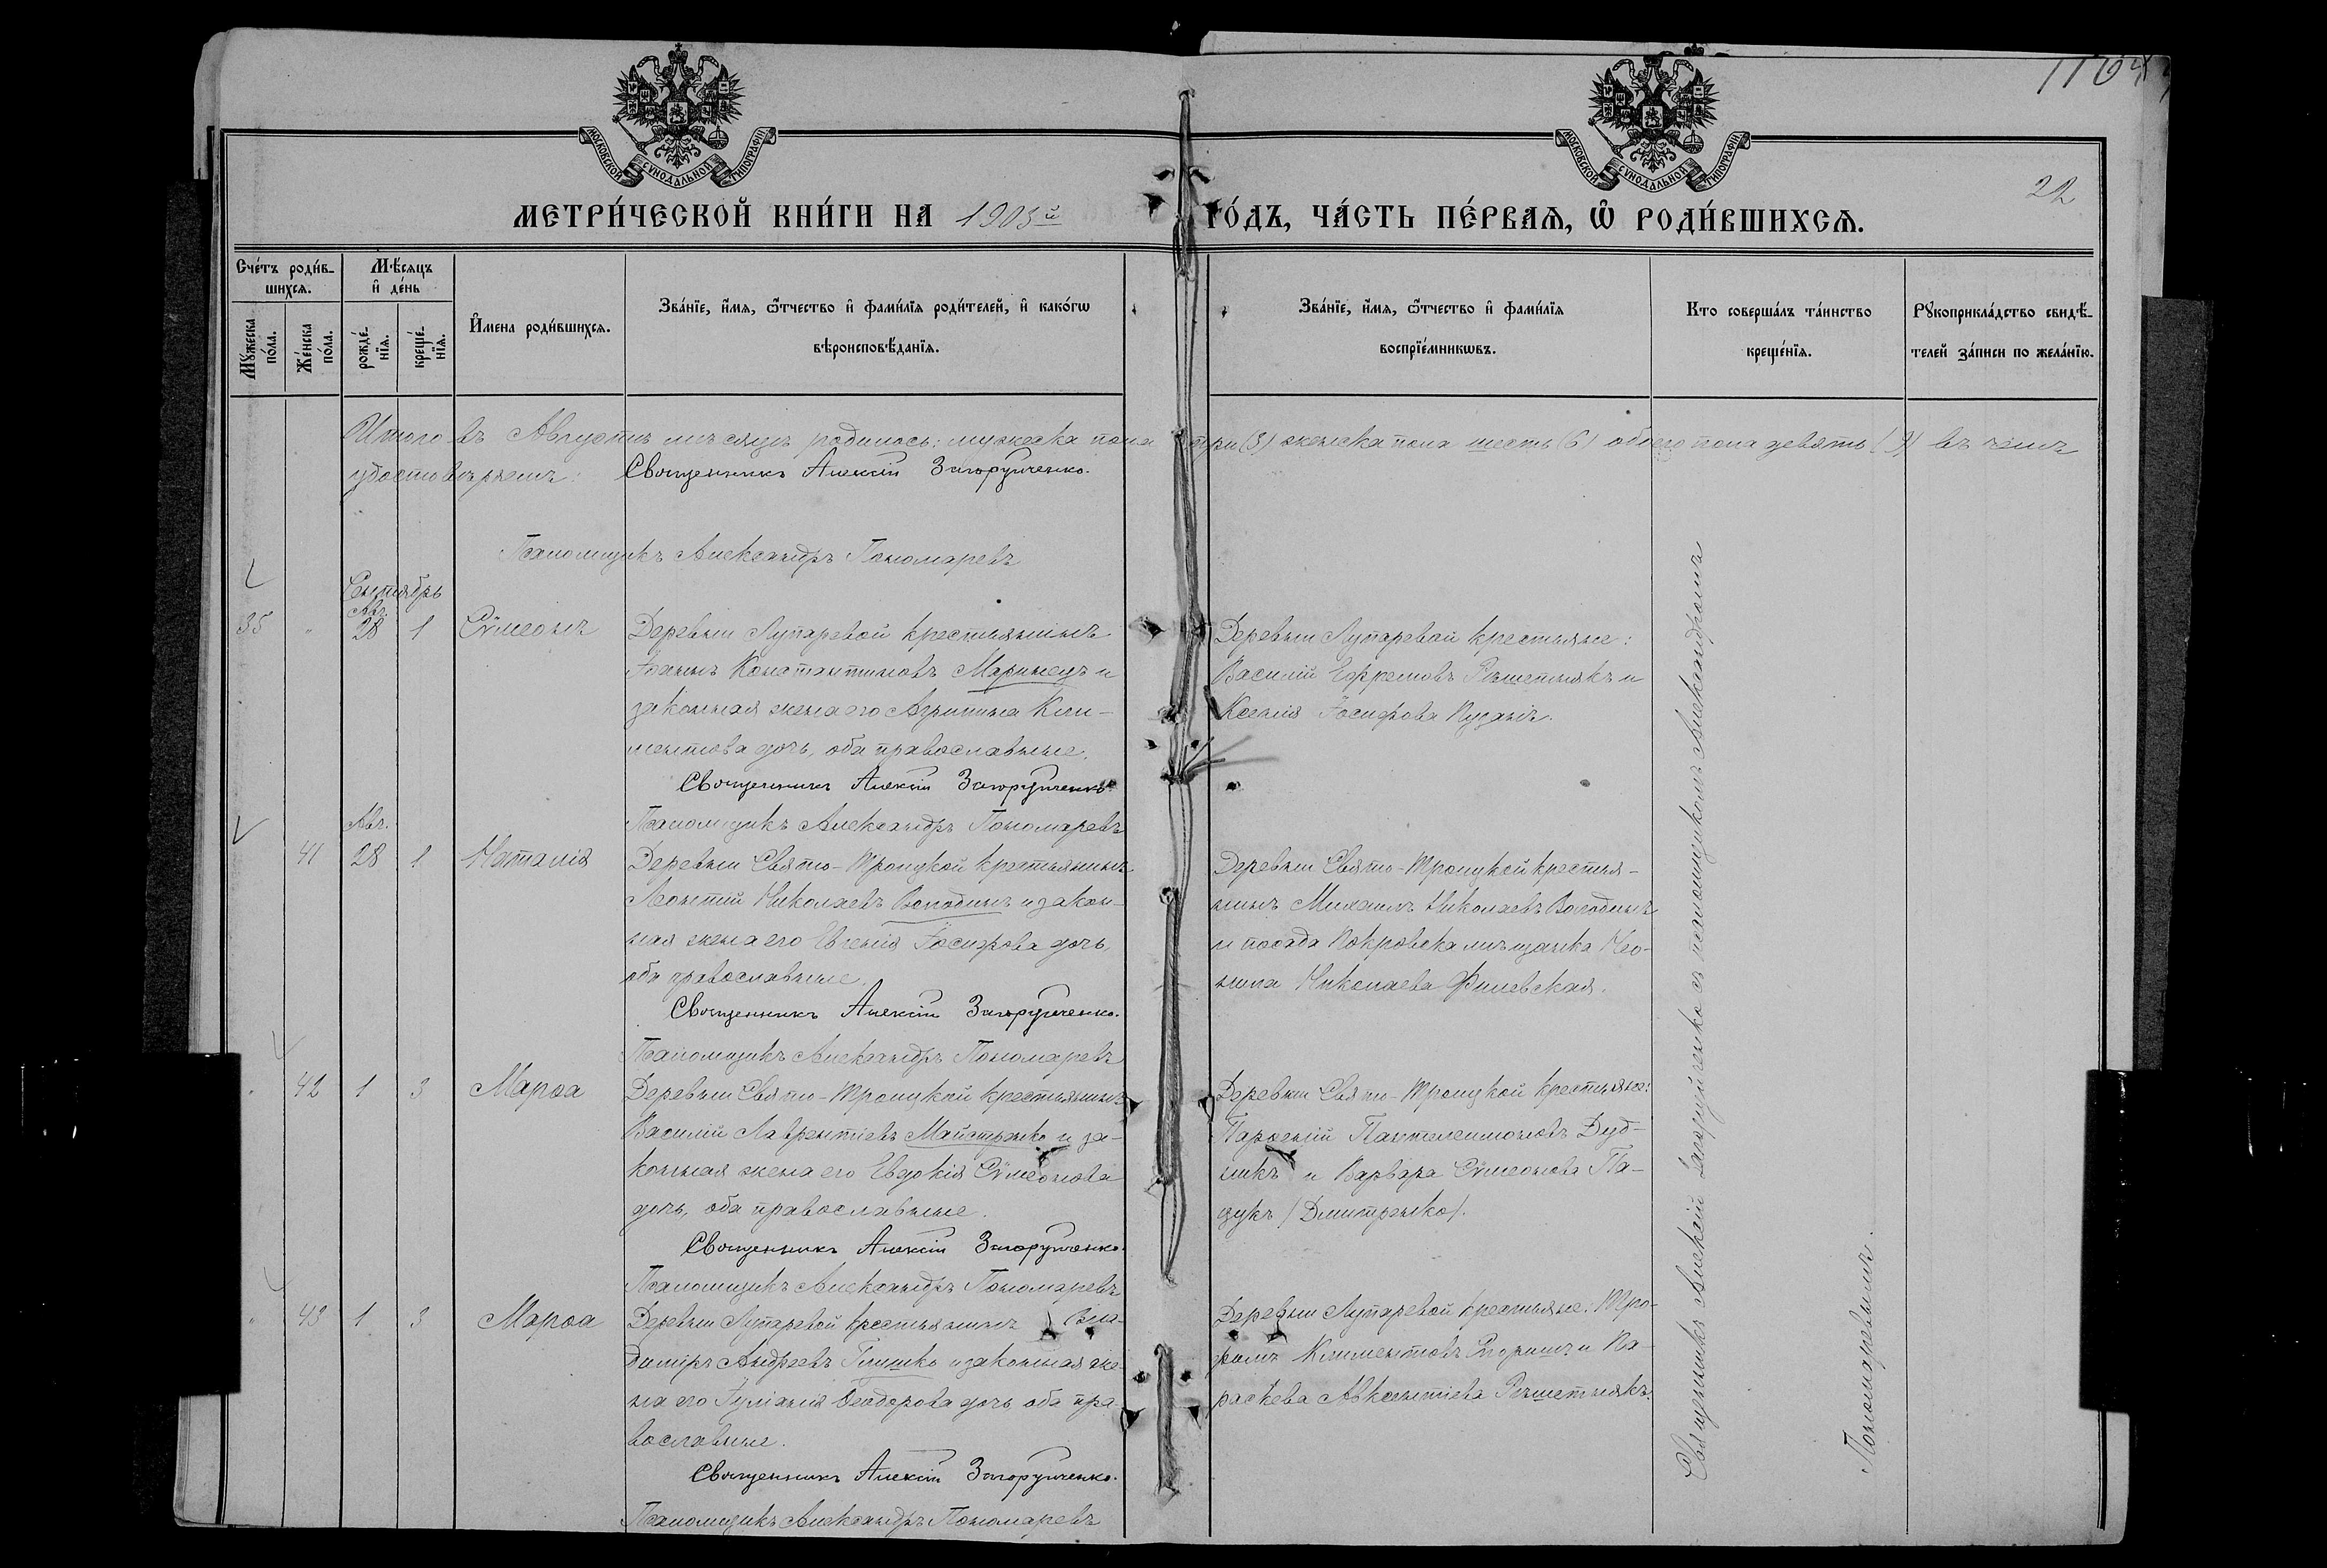 1164
22
МОСКОВСКОЙ СѴНОДАЛЬНОЙ ТИПОГРАФІИ
МОСКОВСКОЙ СѴНОДАЛЬНОЙ ТИПОГРАФІИ
МЕТРИ́ЧЕСКОЙ КНИ́ГИ НА 1905й ГО́ДЪ, ЧА́СТЬ ПЕ́РВАѦ, Ѽ РОДИ́ВШИХСѦ.
Сче́тъ роди́в-
шихсѧ.
Мѣ́сѧцъ
и҆ де́нь
Мꙋ́жеска по́ла.
Же́нска по́ла.
рожде́-
нїѧ.
креще́-
нїѧ.
И҆мена роди́вшихсѧ.
Зва́нїе, и҆́мѧ, ѻ҆́тчество и҆ фами́лїѧ роди́телей, и҆ како́гѡ
вѣроисповѣ́данїѧ.
Зва́нїе, и҆́мѧ, ѻ҆́тчество и҆ фами́лїѧ
воспрїе́мникѡвъ.
Кто соверша́лъ та́инство
креще́нїѧ.
Рꙋкоприкла́дство свидѣ́-
телей за́писи по жела́нїю.
Итого въ Августѣ мѣсяцѣ родилось: мужеска пола три (3) женска пола шесть (6) обоего пола девять (9) въ чемъ
удостовѣряемъ: Священникъ Алексій Загоруйченко.
Псаломщикъ Александръ Пономаревъ
Сентябрь
Авг.
35 " 28 1 Сѵмеонъ
Деревни Лупаревой крестьянинъ
Іоаннъ Константиновъ Маринецъ и
законная жена его Агрипина Кли-
ментова дочь, оба православные.
Священникъ Алексій Загоруйченко.
Псаломщикъ Александръ Пономаревъ
Деревни Лупаревой крестьяне:
Василій Ефремовъ Рѣшетнякъ и
Ксенія Іосифова
Авг.
41 28 1 Наталія
Деревни Свято-Троицкой крестьянинъ
Леонтій Николаевъ Володинъ и закон-
ная жена его Евгенія Іосифова дочь
оба православные.
Священникъ Алексій Загоруйченко.
Псаломщикъ Александръ Пономаревъ
Деревни Свято-Троицкой крестья-
нинъ Михаилъ Николаевъ Володинъ
и посада Покровска мѣщанка Нео-
нила Николаева Филевская.
" 42 1 3 Марѳа
Деревни Свято-Троицкой крестьянинъ
Василій Лаврентіевъ Майстренко и за-
конная жена его Евдокія Сѵмеонова
дочь, оба православные.
Священникъ Алексій Загоруйченко.
Псаломщикъ Александръ Пономаревъ
Деревни Свято-Троицкой крестьяне:
Парѳеній Пантелеимоновъ Дуд-
никъ и Варвара Сѵмеонова Па-
щукъ (Дмитренко).
" 43 1 3 Марѳа
Деревни Лупаревой крестьянинъ Вла-
диміръ Андреевъ Глишко и законная же-
на его Іуліанія Ѳеодорова дочь оба пра-
вославные.
Священникъ Алексій Загоруйченко.
Псаломщикъ Александръ Пономаревъ
Деревни Лупаревой крестьяне: Тро-
фимъ Климентовъ и Па-
раскева Авксентіева Рѣшетнякъ.
Священникъ Алексій Загоруйченко съ псаломщикомъ Александромъ
Пономаревымъ.